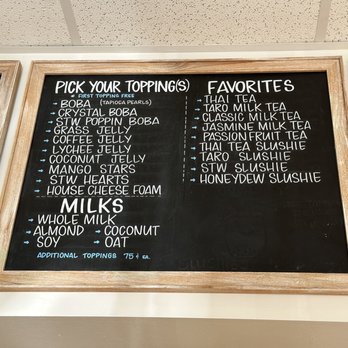 PICK YOUR TOPPING(S)
* FIRST TOPPING FREE
→ BOBA (TAPIOCA PEARLS)
→ CRYSTAL BOBA
→ STW POPPIN BOBA
→ GRASS JELLY
→ COFFEE JELLY
→ LYCHEE JELLY
→ COCONUT JELLY
→ MANGO STARS
→ STW HEARTS
→ HOUSE CHEESE FOAM
MILKS
→ WHOLE MILK
→ ALMOND → COCONUT
→ SOY → OAT
ADDITIONAL TOPPINGS 75¢ EA.
FAVORITES
→ THAI TEA
→ TARO MILK TEA
→ CLASSIC MILK TEA
→ JASMINE MILK TEA
→ PASSIONFRUIT TEA
→ THAI TEA SLUSHIE
→ TARO SLUSHIE
→ STW SLUSHIE
→ HONEYDEW SLUSHIE